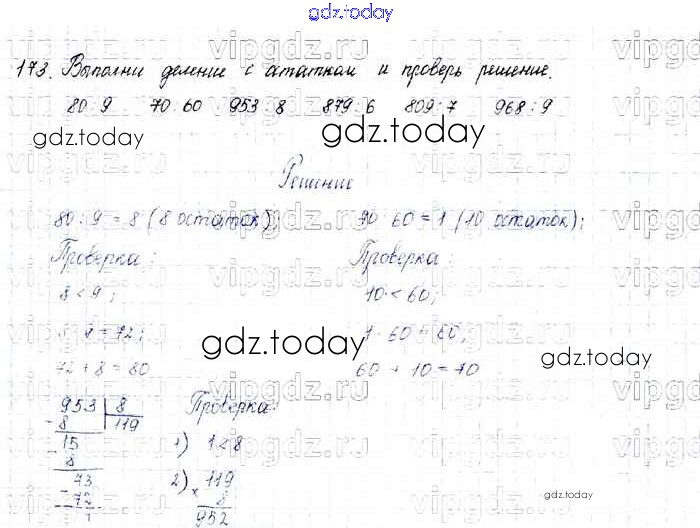 gdz.today
173. Выполни деление с остатком и проверь решение.
80:9 70:60 953:8 879:6 809:7 968:9
gdz.today
gdz.today
Решение
80:9=8 (8 остаток); 60=1 (10 остаток);
Проверка: Проверка:
8<9; 10<60;
9=72; 1·60=60;
gdz.today
gdz.today
72+8=80 60+10=70
953 8 Проверка:
- 8 119
15 1) 1<8
- 8
73 2) 119
- 72 × 8
1 952
gdz.today